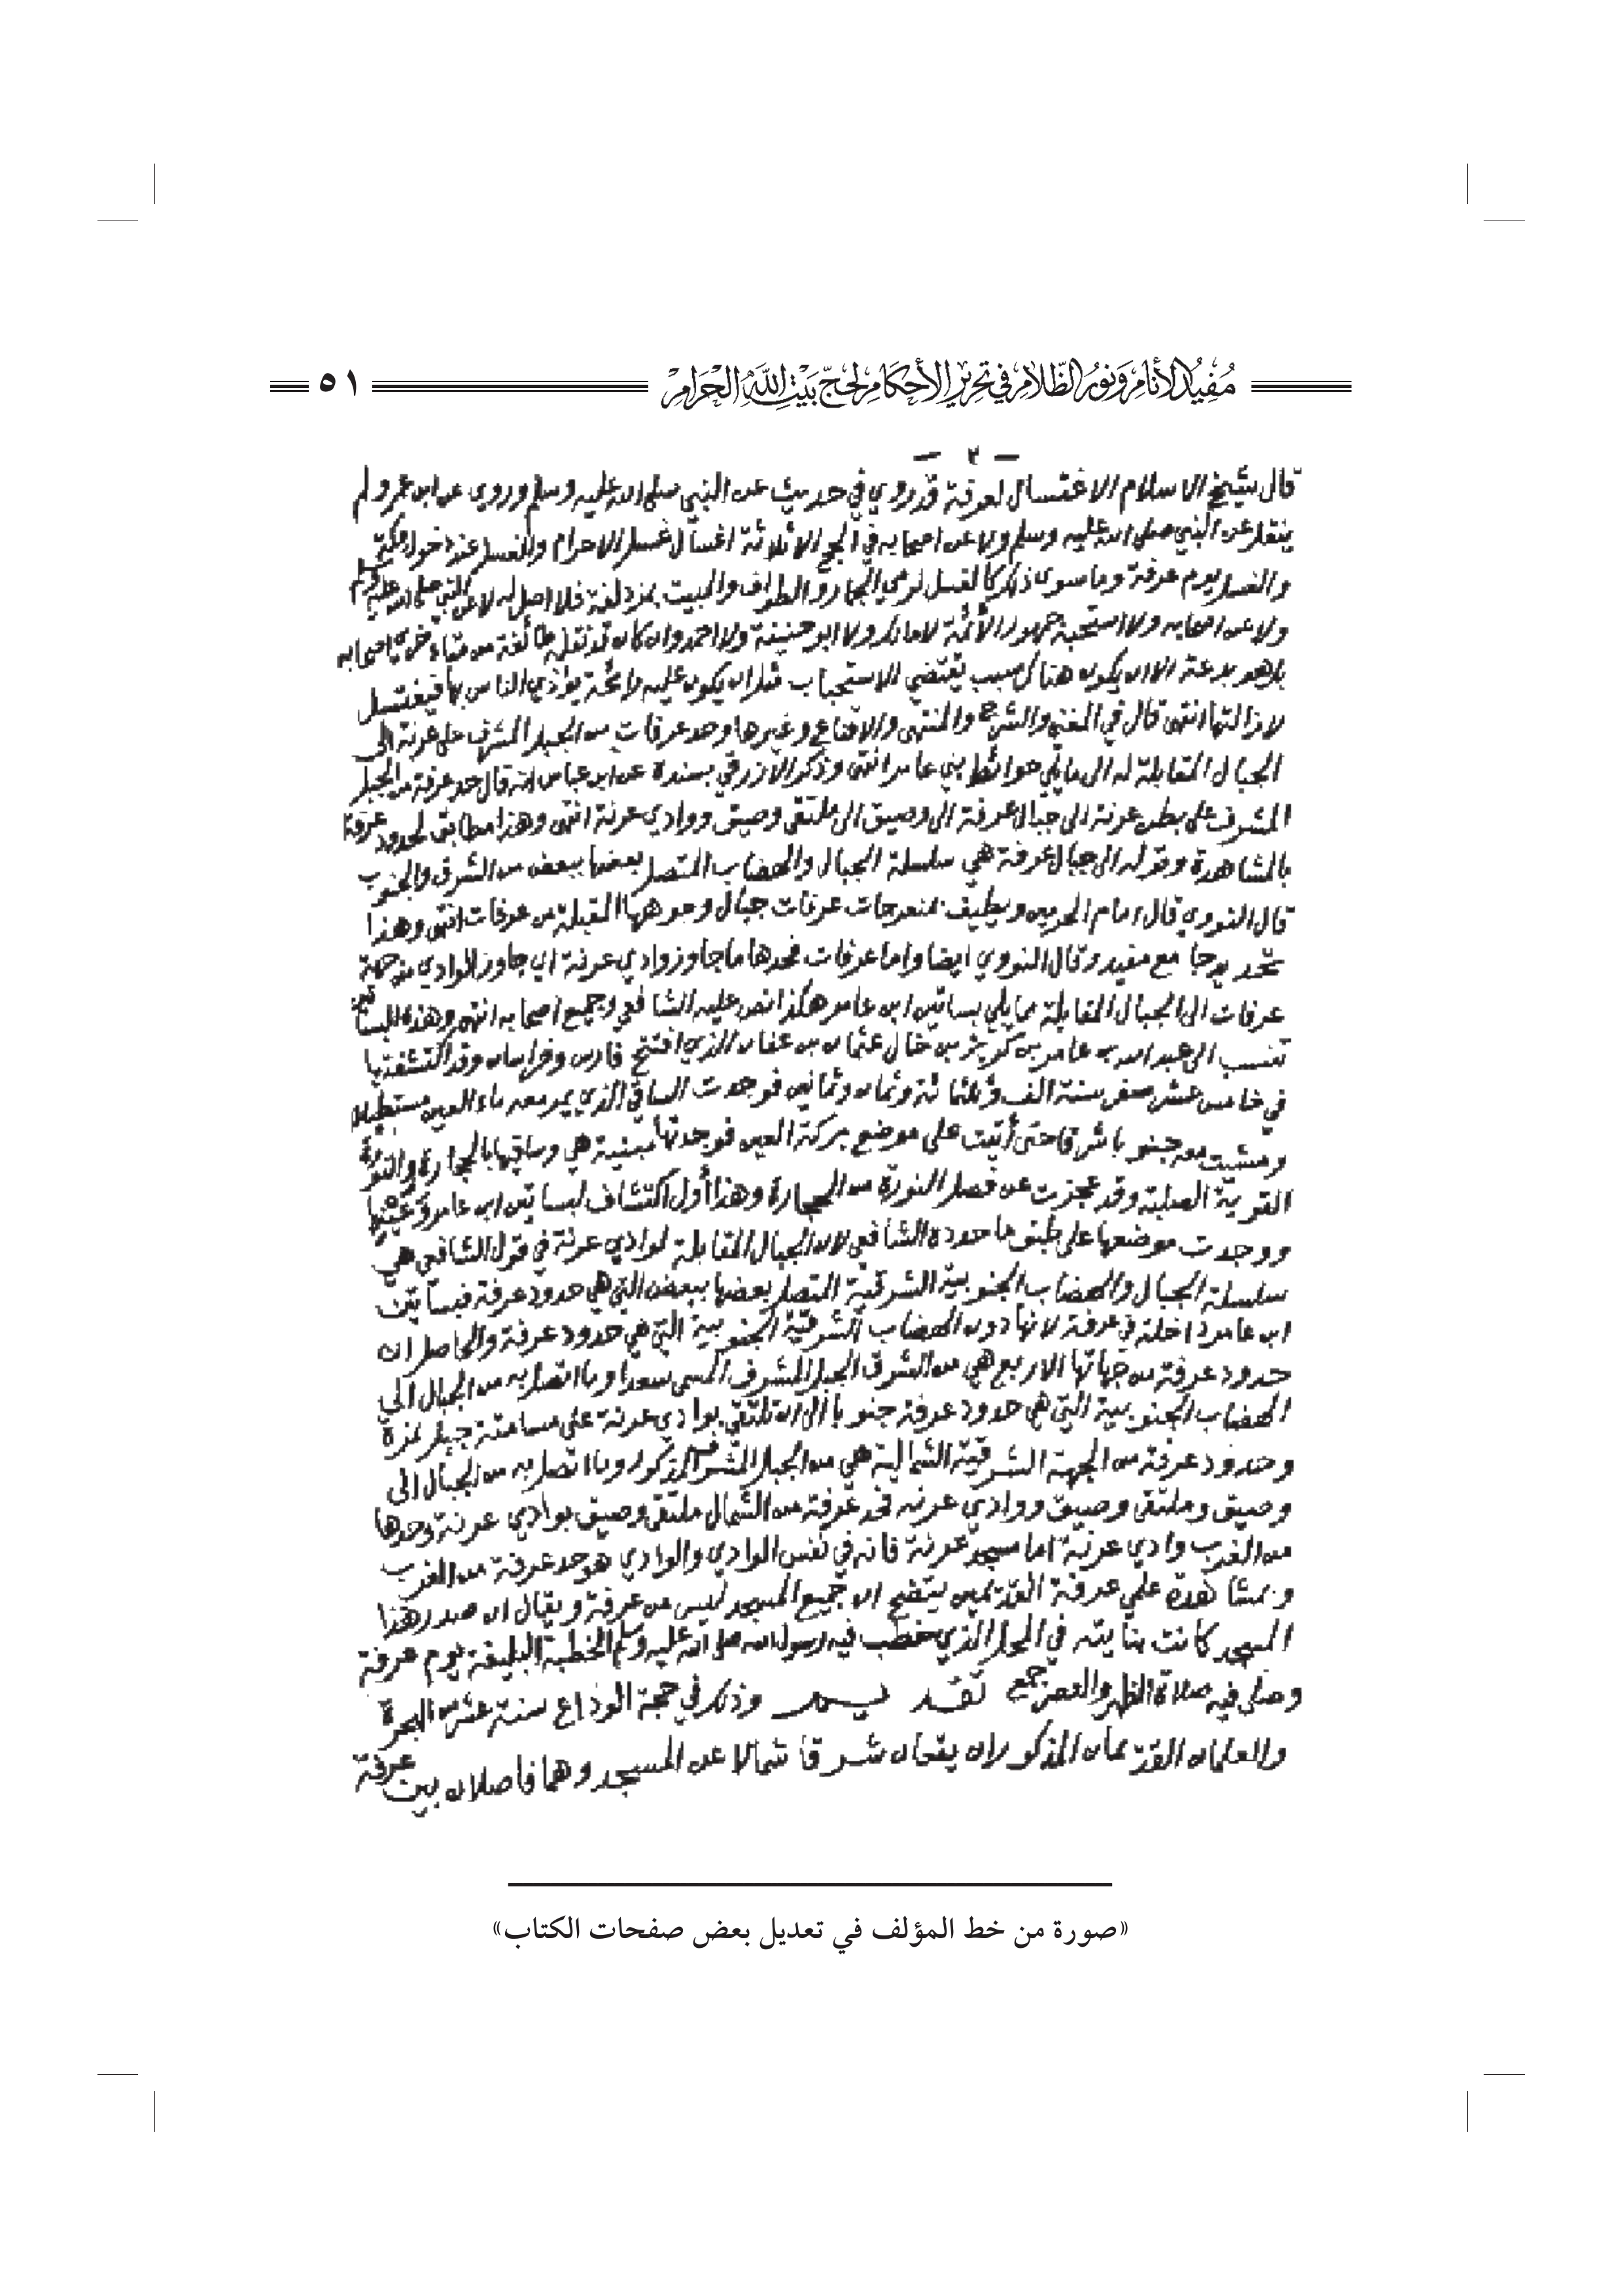 مُفِيدُ الأَنَامِ وَنُورُ الظَّلَامِ فِي تَحْرِيرِ الأَحْكَامِ لِحَجِّ بَيْتِ اللهِ الحَرَامِ
٥١
- ٢ -
قال شيخ الاسلام الاغتسال لعرفة قد روي في حديث عن النبي صلى الله عليه وسلم وروي عن ابن عمر ولم
ينقل عن النبي صلى الله عليه وسلم ولا عن اصحابه في الحج الا ثلاثة اغسال غسل الاحرام والغسل عند دخول مكة
والغسل يوم عرفة وما سوى ذلك كالغسل لرمي الجمار والطواف والمبيت بمزدلفة فلا اصل له لا عن النبي صلى الله عليه وسلم
ولا عن اصحابه ولا استحبه جمهور الأئمة لا مالك ولا ابو حنيفة ولا احمد وان كان قد نقله طائفة من متأخري اصحابه
بل هو بدعة الا ان يكون هناك سبب يقتضي الاستحباب مثل ان يكون عليه رائحة يؤذي الناس بها فيغتسل
لازالتها انتهى قال في المغني والشرح والمنتهى والاقناع وغيرها وحد عرفات من الجبل المشرف على عرنة الى
الجبال المقابلة له الى ما يلي حوائط بني عامر انتهى وذكر الأزرقي بسنده عن ابن عباس انه قال حد عرفة من الجبل
المشرف على بطن عرنة الى جبال عرفة الى وصيق الى ملتقى وصيق ووادي عرنة انتهى وهذا مطابق لحدود عرفة
بالمشاهدة وقوله الى جبال عرفة هي سلسلة الجبال والهضاب المتصل بعضها ببعض من الشرق والجنوب
قال النووي قال امام الحرمين ويطيف بمنعرجات عرفات جبال وجوهها المقبلة من عرفات انتهى وهذا
تحديد جامع مفيد وقال النووي ايضا واما عرفات فحدها ما جاوز وادي عرنة اي جاوز الوادي من جهة
عرفات الى الجبال المقابلة مما يلي بساتين ابن عامر هكذا نص عليه الشافعي وجميع اصحابه انتهى وهذه البساتين
تنسب الى عبد الله بن عامر بن كريز بن خال عثمان بن عفان الذي افتتح فارس وخراسان وقد اكتشفتها
في خامس عشر صفر سنة الف وثلثمائة وثمان وثمانين فوجدت الساقي الذي يمر معه ماء العين مستطيلا
ومشيت معه جنوبا شرقا حتى أتيت على موضع بركة العين فوجدتها مبنية هي وساقيها بالحجارة والنورة
القوية الصلبة وقد عجزت عن فصل النورة من الحجارة وهذا أول اكتشاف لبساتين ابن عامر وعينها
ووجدت موضعها على طبق ما حدده الشافعي لان الجبال المقابلة لوادي عرنة في قول الشافعي هي
سلسلة الجبال والهضاب الجنوبية الشرقية المتصل بعضها ببعض التي هي حدود عرفة فبساتين
ابن عامر داخلة في عرفة لانها دون الهضاب الشرقية الجنوبية التي هي حدود عرفة والحاصل ان
حدود عرفة من جهاتها الاربع هي من الشرق الجبل المشرف المسمى سعدا وما اتصل به من الجبال الى
الهضاب الجنوبية التي هي حدود عرفة جنوبا الى ان تلتقي بوادي عرنة على مسامتة جبل نمرة
وحدود عرفة من الجهة الشرقية الشمالية هي من الجبل المشرف المذكور وما اتصل به من الجبال الى
وصيق وملتقى وصيق ووادي عرنه فحد عرفة من الشمال ملتقى وصيق بوادي عرنة وحدها
من الغرب وادي عرنة اما مسجد عرنة فانه في نفس الوادي والوادي هو حد عرفة من الغرب
وبمشاهدة علمي عرفة القديمين يتضح ان جميع المسجد ليس من عرفة ويقال ان صدر هذا
المسجد كانت بنايته في المحل الذي خطب فيه رسول الله صلى الله عليه وسلم الخطبة البليغة يوم عرفة
وصلى فيه صلاة الظهر والعصر جمع تقديم وذلك في حجة الوداع سنة عشر من الهجرة
والعلمان القديمان المذكوران يقعان شرقا شمالا عن المسجد وهما فاصلان بين عرفة
«صورة من خط المؤلف في تعديل بعض صفحات الكتاب»